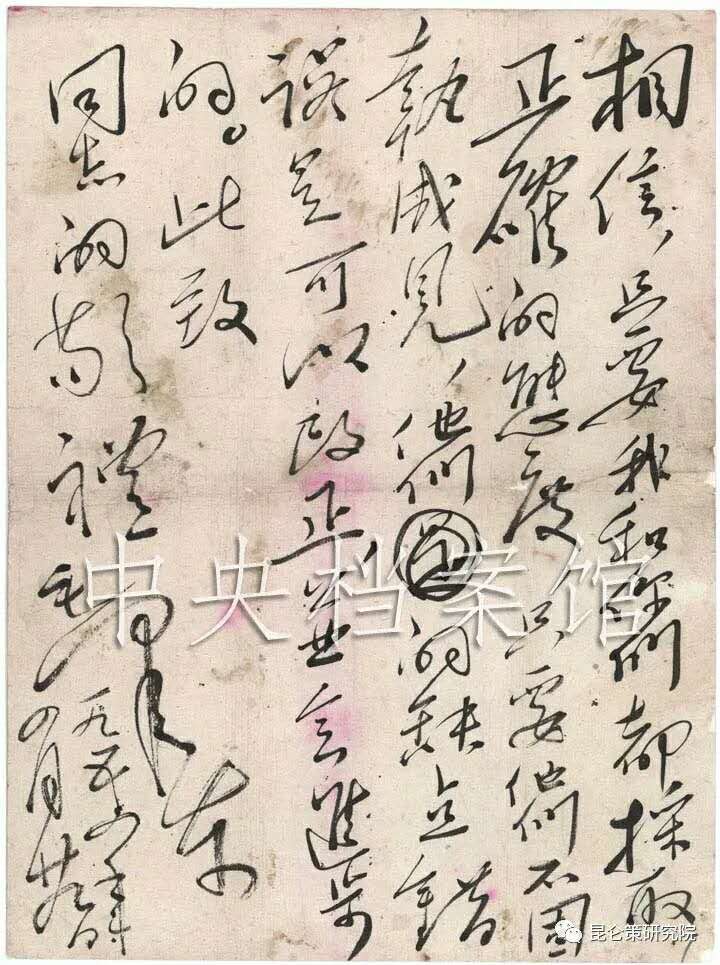 相信，只要我和你們都採取
正確的態度，只要他們不固
執成見，他們的缺点錯
誤是可以改正，並会進步
的。此致
同志的敬禮
毛澤东
一九五六年
四月廿九日
中央档案馆
昆仑策研究院